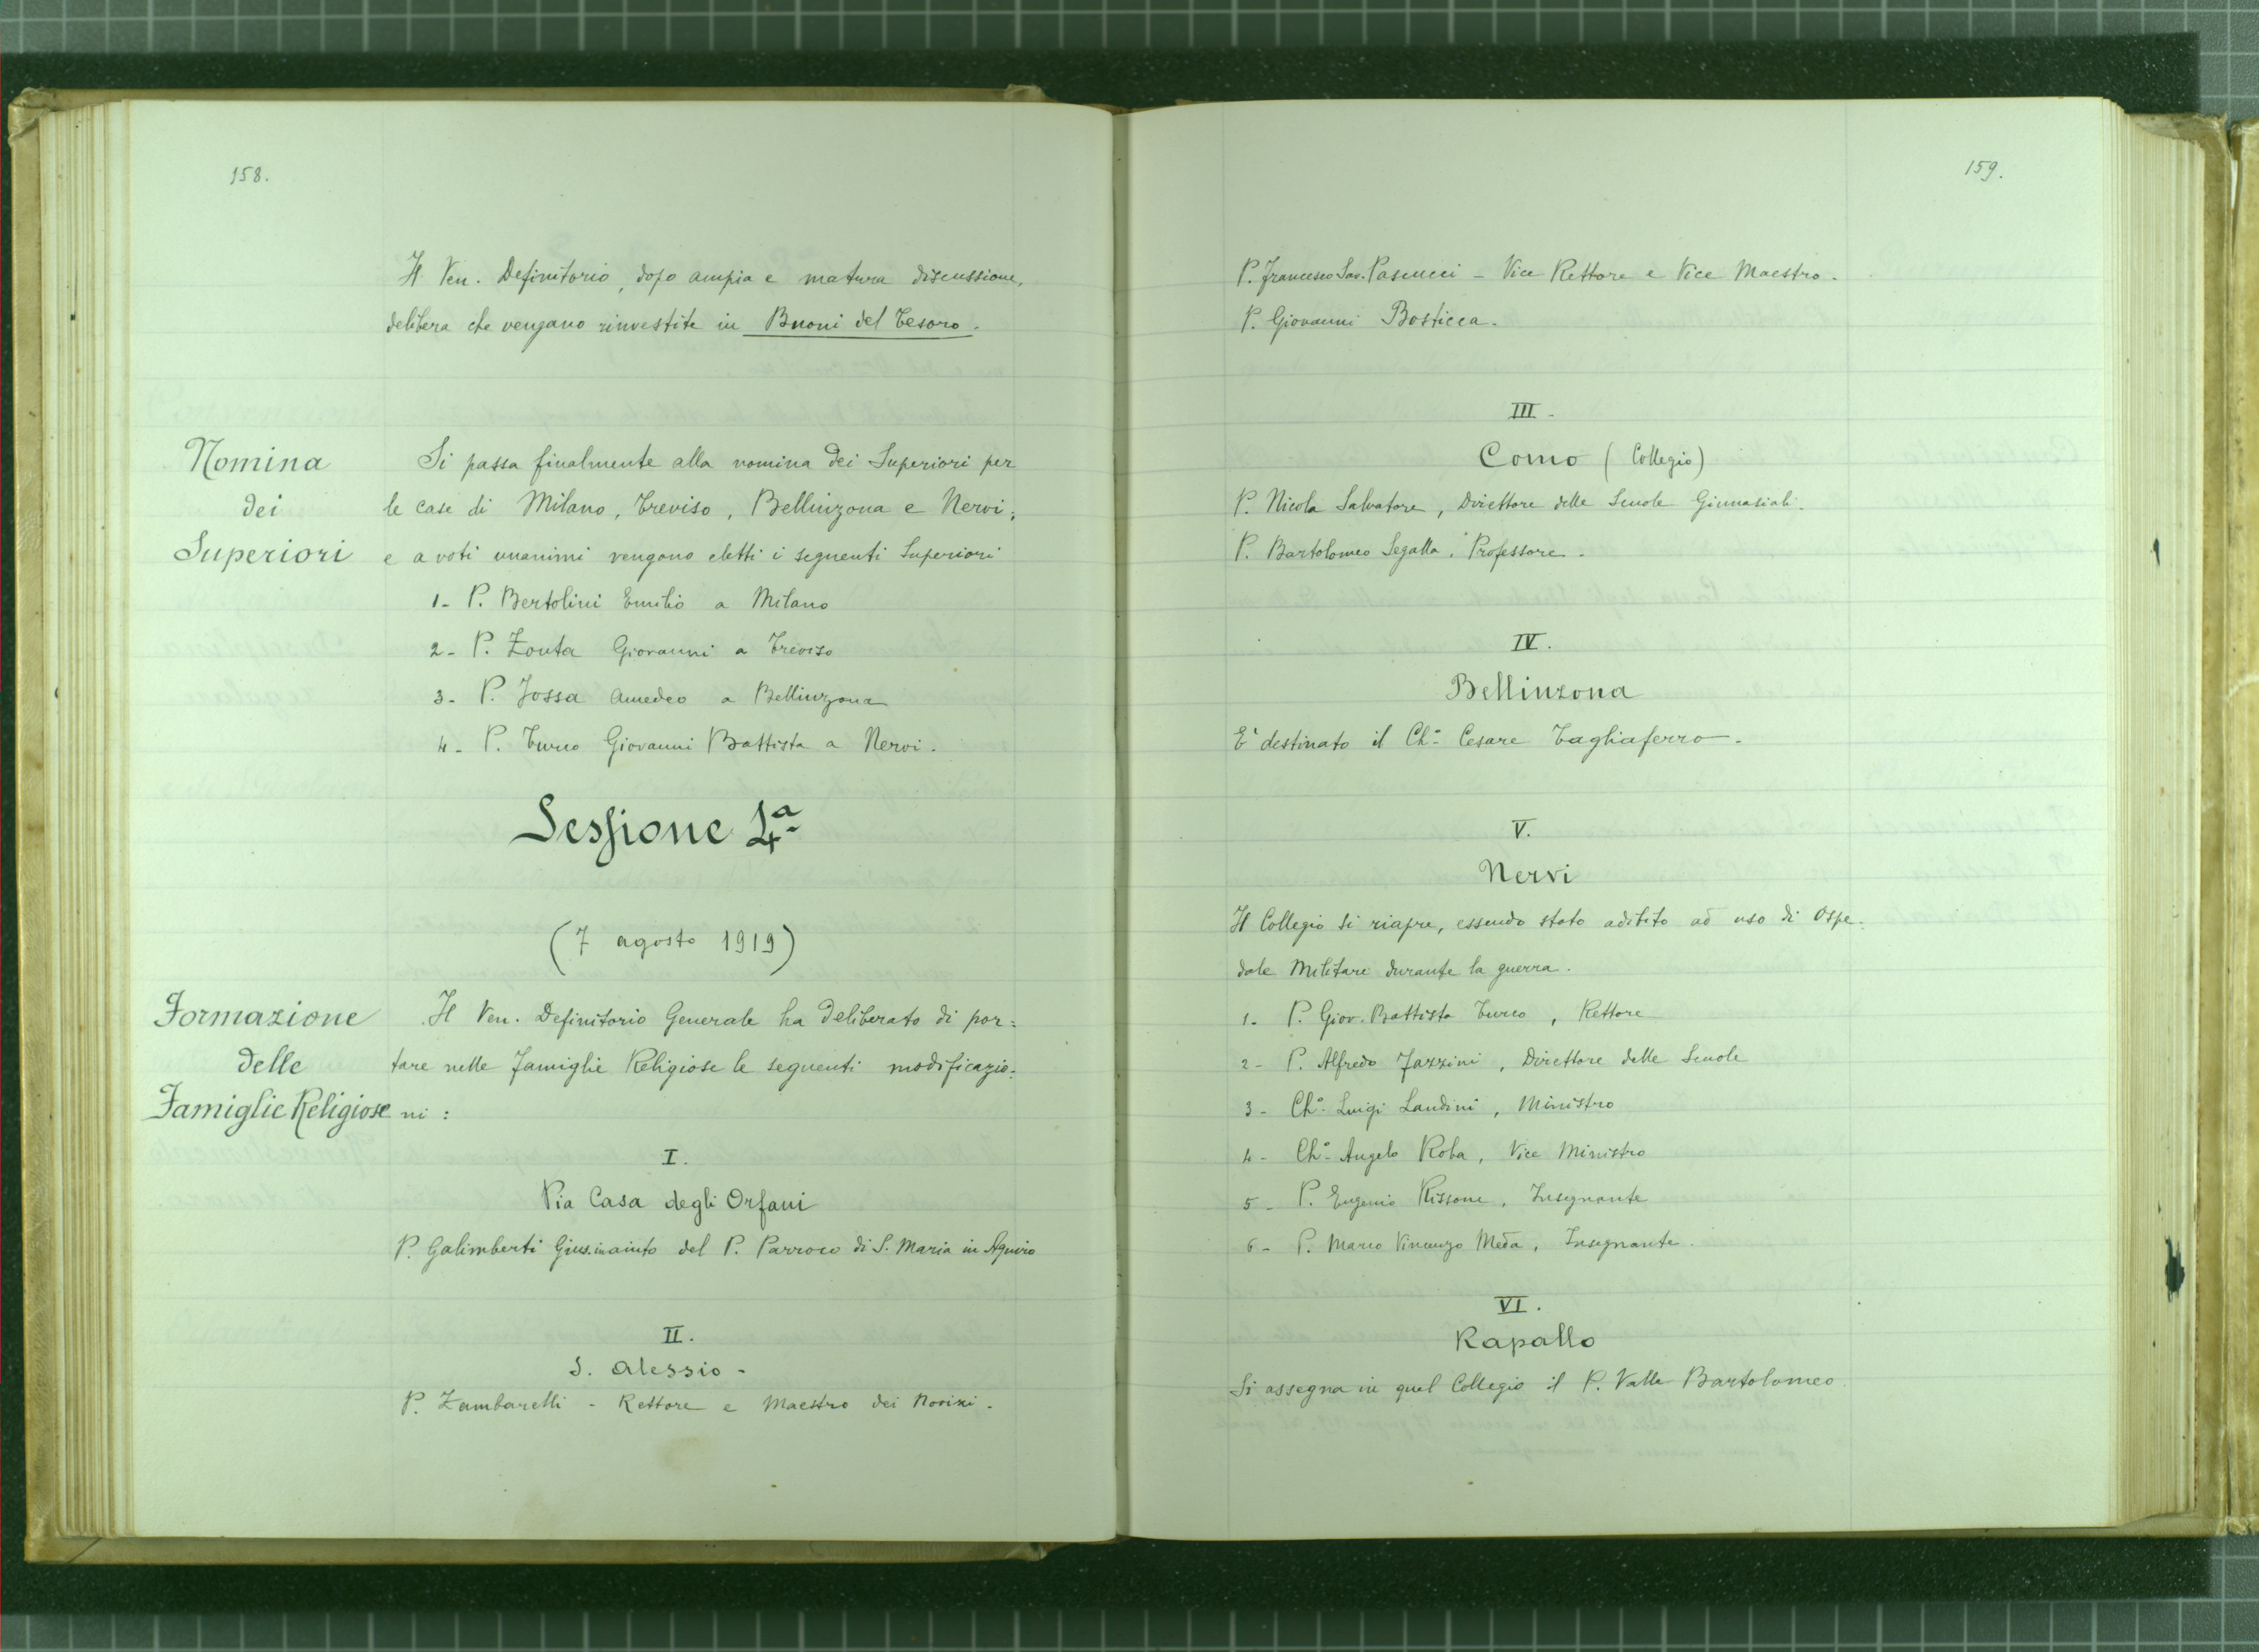 158.
Il Ven. Definitorio, dopo ampia e matura discussione,
delibera che vengano rinvestite in Buoni del Tesoro.
Nomina
dei
Superiori
Si passa finalmente alla nomina dei Superiori per
le case di Milano, Treviso, Bellinzona e Nervi;
e a voti unanimi vengono eletti i seguenti Superiori
1- P. Bertolini Emilio a Milano
2- P. Zonta Giovanni a Treviso
3- P. Jossa Amedeo a Bellinzona
4- P. Turco Giovanni Battista a Nervi.
Sessione 4ª
(7 agosto 1919)
Formazione
delle
Famiglie Religiose
Il Ven. Definitorio Generale ha deliberato di por=
tare nelle Famiglie Religiose le seguenti modificazio=
ni :
I.
Via Casa degli Orfani
P. Galimberti Gius. in aiuto del P. Parroco di S. Maria in Aquiro
II.
S. Alessio -
P. Zambarelli - Rettore e Maestro dei Novizi.
159.
P. Francesco Sav. Pascucci - Vice Rettore e Vice Maestro.
P. Giovanni Bosticca.
III.
Como (Collegio)
P. Nicola Salvatore, Direttore delle Scuole Ginnasiali.
P. Bartolomeo Segalla, Professore.
IV.
Bellinzona
E' destinato il Ch.° Cesare Tagliaferro.
V.
Nervi
Il Collegio si riapre, essendo stato adibito ad uso di Ospe=
dale Militare durante la guerra.
1. P. Giov. Battista Turco, Rettore
2- P. Alfredo Fazzini, Direttore delle Scuole
3- Ch.° Luigi Landini, Ministro
4- Ch.° Angelo Roba, Vice Ministro
5- P. Eugenio Rissone, Insegnante
6- P. Marco Vincenzo Meda, Insegnante.
VI.
Rapallo
Si assegna in quel Collegio il P. Valle Bartolomeo.